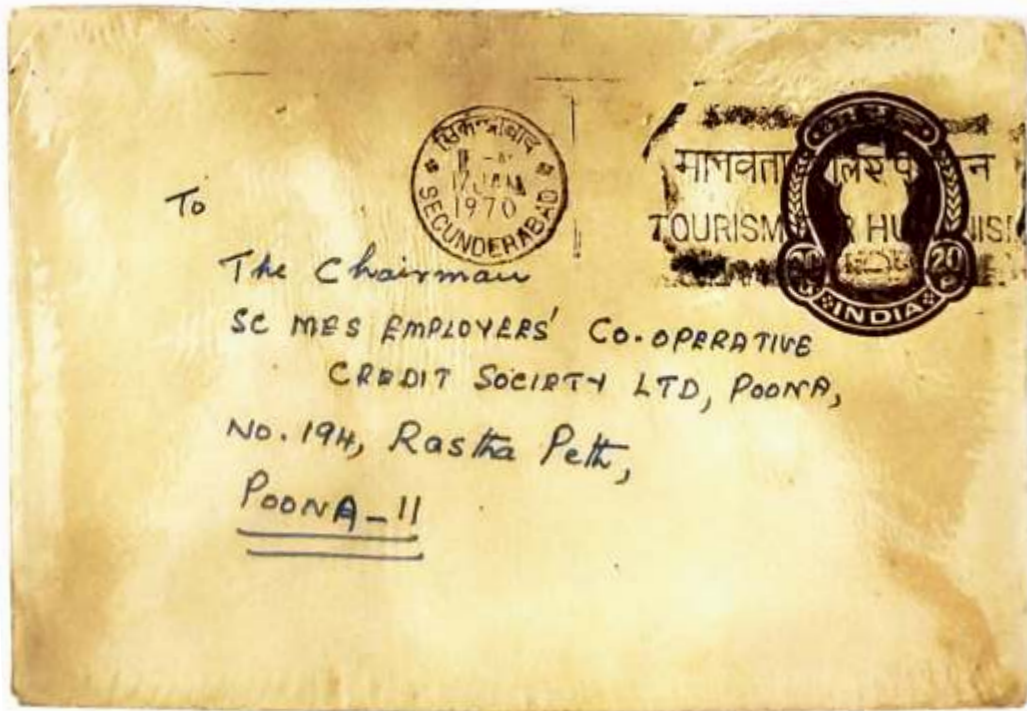 सिकन्द्राबाद
17 JAN
1970
SECUNDERABAD
मानवता
TOURISM
20
20
INDIA
To
The Chairman
SC MES EMPLOYEES' CO-OPERATIVE
CREDIT SOCIETY LTD, POONA,
No. 194, Rastha Peth,
POONA-11